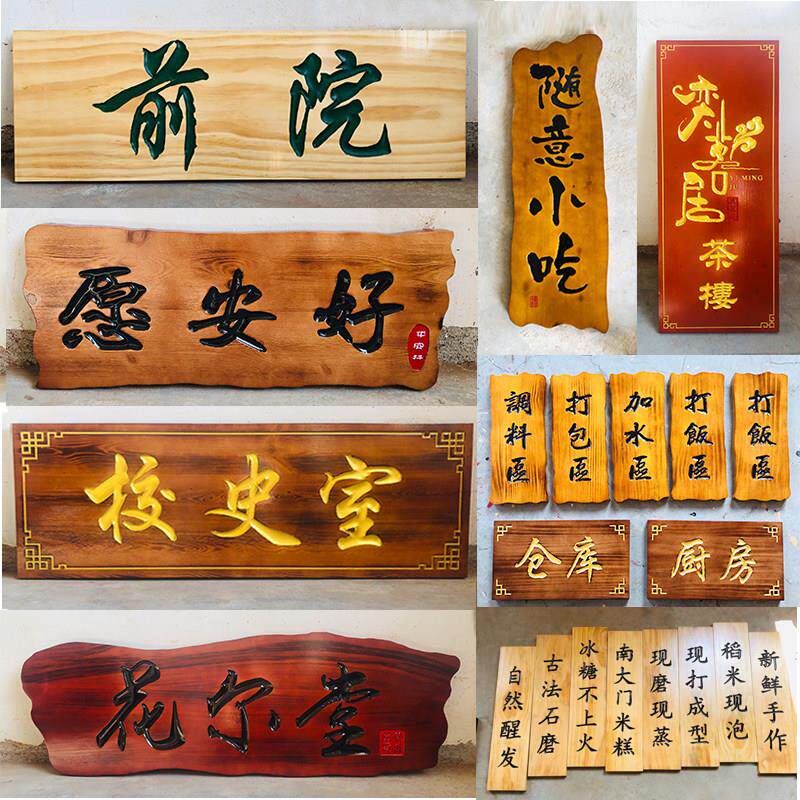 前院
随意小吃
奕茗居
YI MING
JU
茶樓
愿安好
調料區
打包區
加水區
打飯區
打飯區
校史室
仓库
厨房
花尔堂
自然醒发
古法石磨
冰糖不上火
南大门米糕
现磨现蒸
现打成型
稻米现泡
新鲜手作